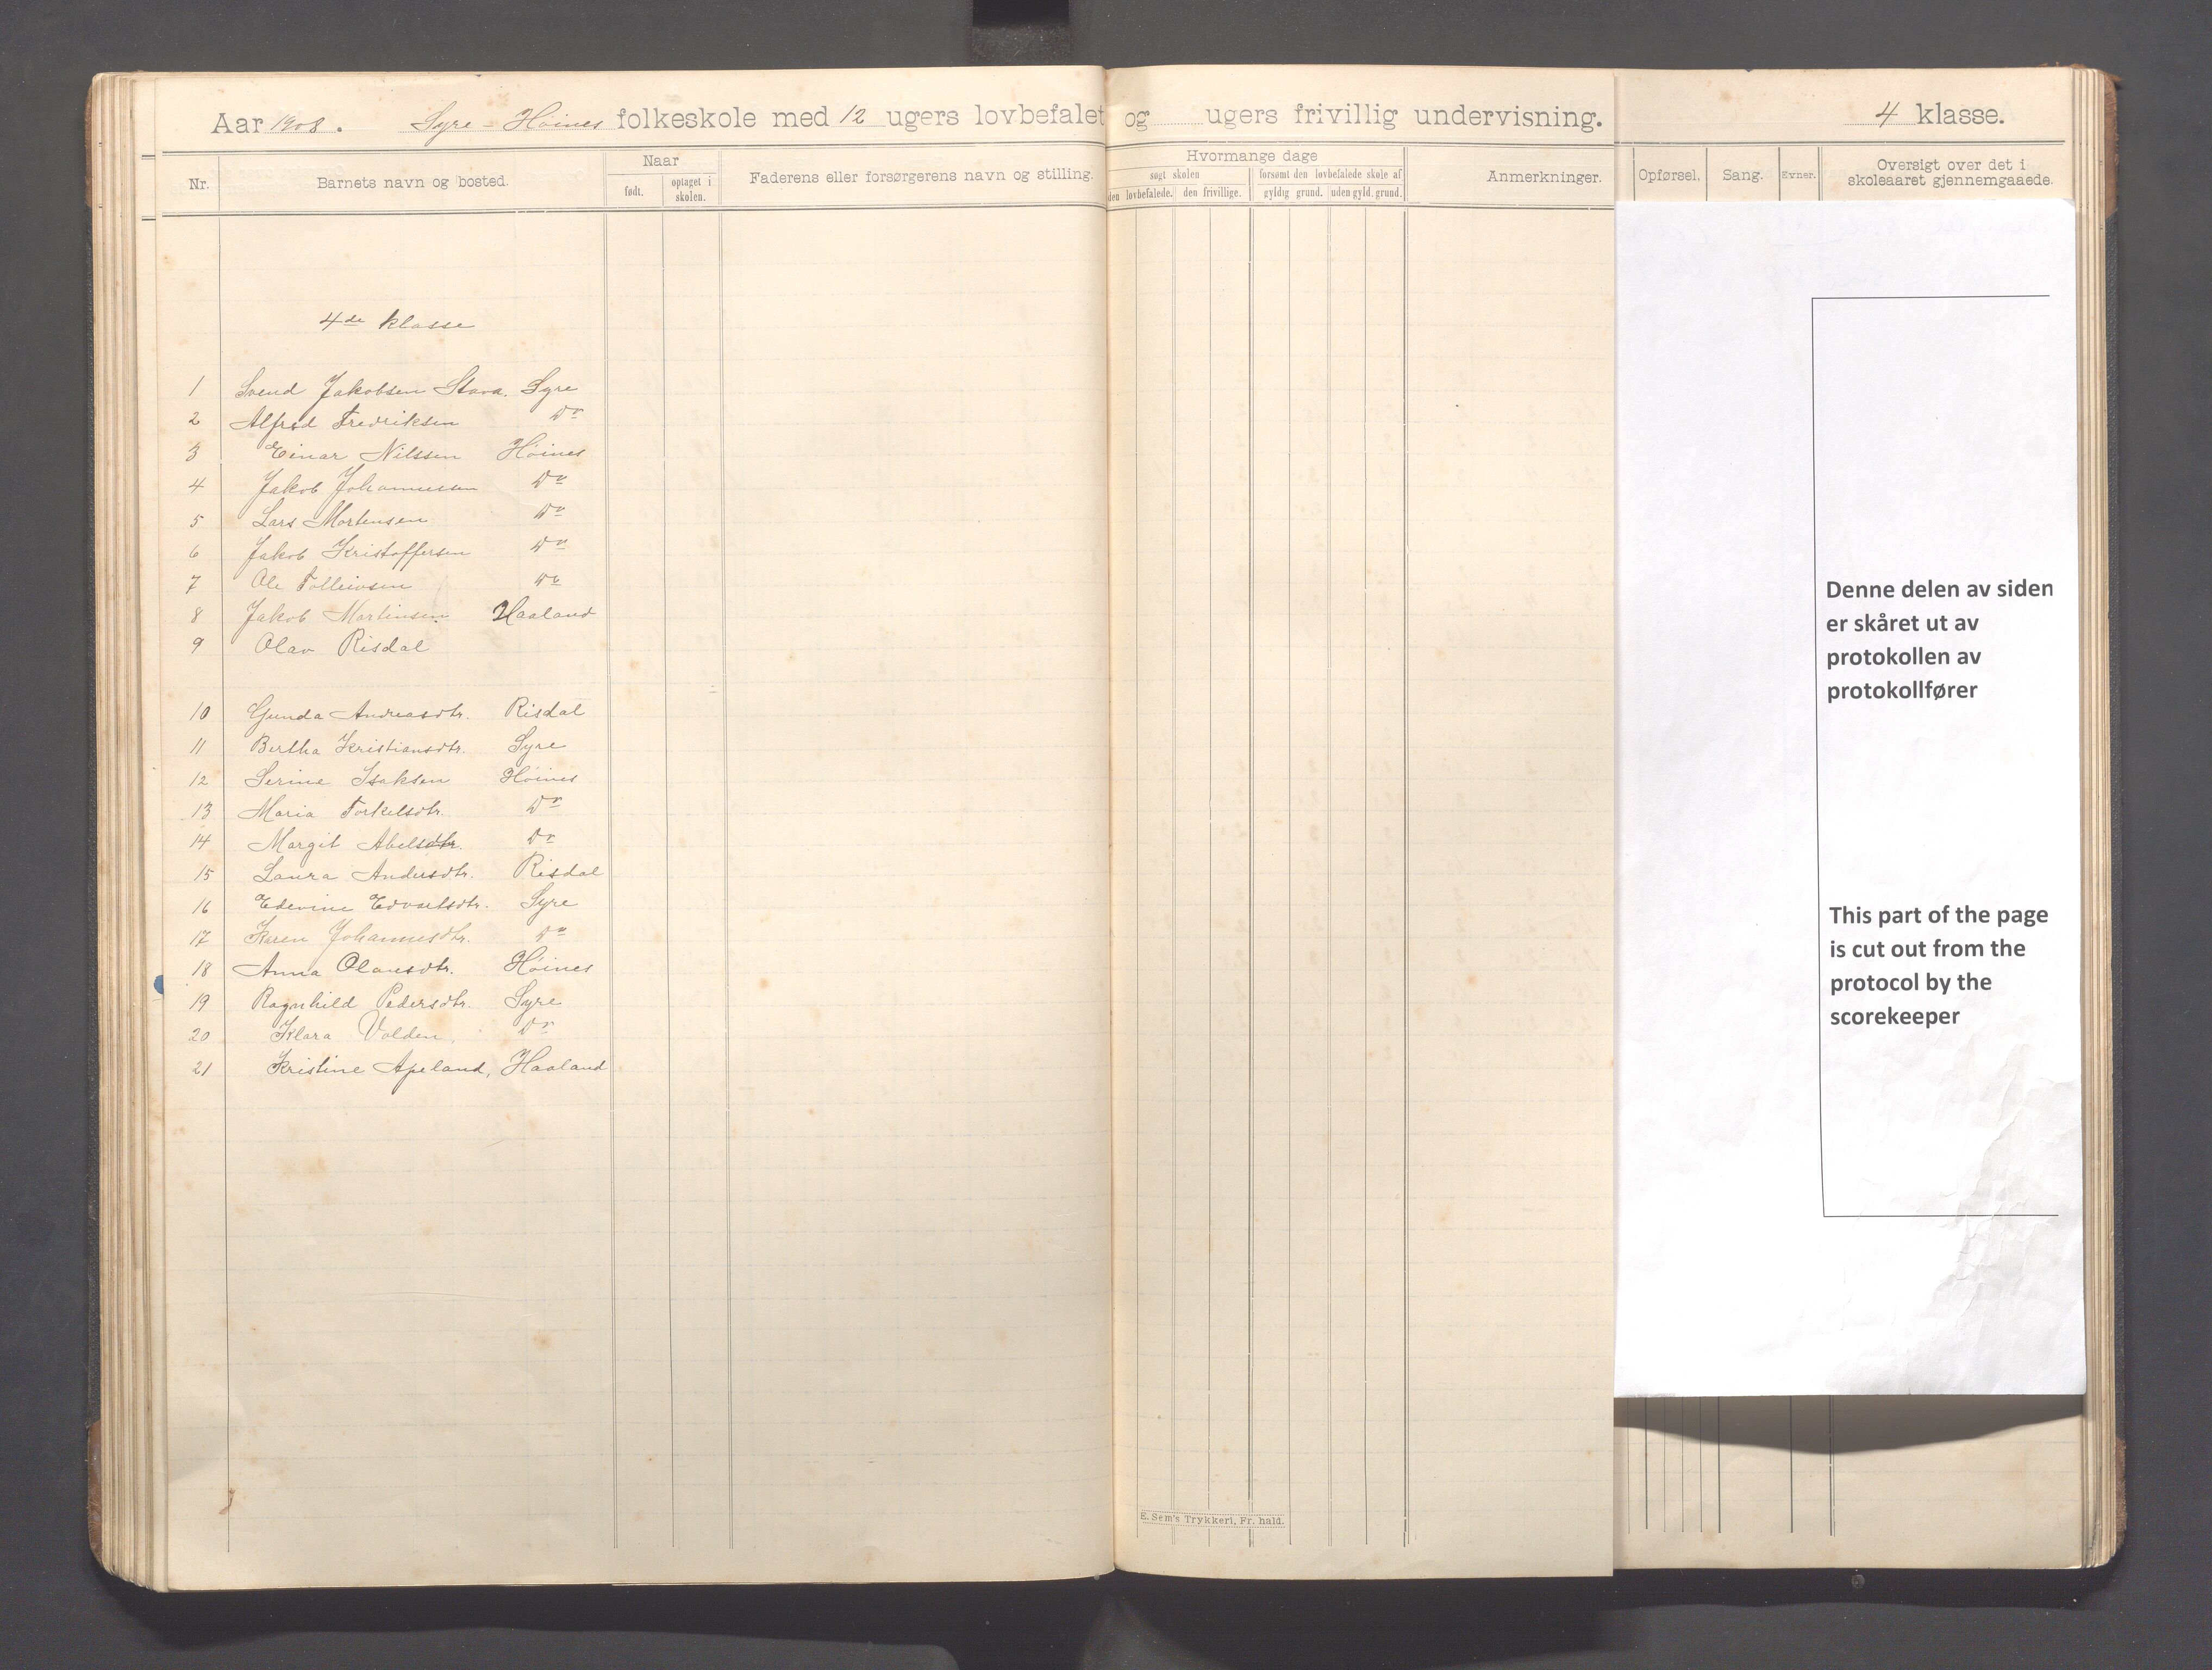 Aar 1908. Syre-Höines folkeskole med 12 ugers lovbefalet og ugers frivillig undervisning. 4 klasse.
Nr. Barnets navn og bosted. Naar født. optaget i skolen. Faderens eller forsørgerens navn og stilling. Hvormange dage søgt skolen den lovbefalede. den frivillige. forsømt den lovbefalede skole af gyldig grund. uden gyld. grund. Anmerkninger. Opførsel. Sang. Evner. Oversigt over det i skoleaaret gjennemgaaede.
4de klasse
1 Svend Jakobsen Stava, Syre
2 Alfred Fredriksen Do
3 Einar Nilssen Höines
4 Jakob Johannessen Do
5 Lars Mortensen Do
6 Jakob Kristoffersen Do
7 Ole Tolleivsen Do
8 Jakob Martinsen Haaland
9 Olav Risdal
10 Gunda Andreasdtr. Risdal
11 Bertha Kristiansdtr. Syre
12 Serine Isaksen Höines
13 Maria Torkelsdtr. Do
14 Margit Abelsdtr. Do
15 Laura Andersdtr. Risdal
16 Edevine Edvartsdtr. Syre
17 Karen Johannesdtr. Do
18 Anna Olausdtr. Höines
19 Ragnhild Pedersdtr. Syre
20 Klara Valden, Do
21 Kristine Apeland, Haaland
E. Sem's Trykkeri, Fr. hald.
Denne delen av siden
er skåret ut av
protokollen av
protokollfører
This part of the page
is cut out from the
protocol by the
scorekeeper